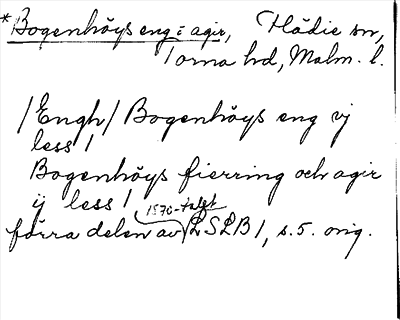 *Bogenhöys eng = agir, Flädie sn,
Torna hd, Malm. l.
/Engh/ Bogenhöys eng vj
less /
Bogenhöys fierring och agir
ij less /
1570-talet
förra delen av LSLB 1, s. 5. orig.